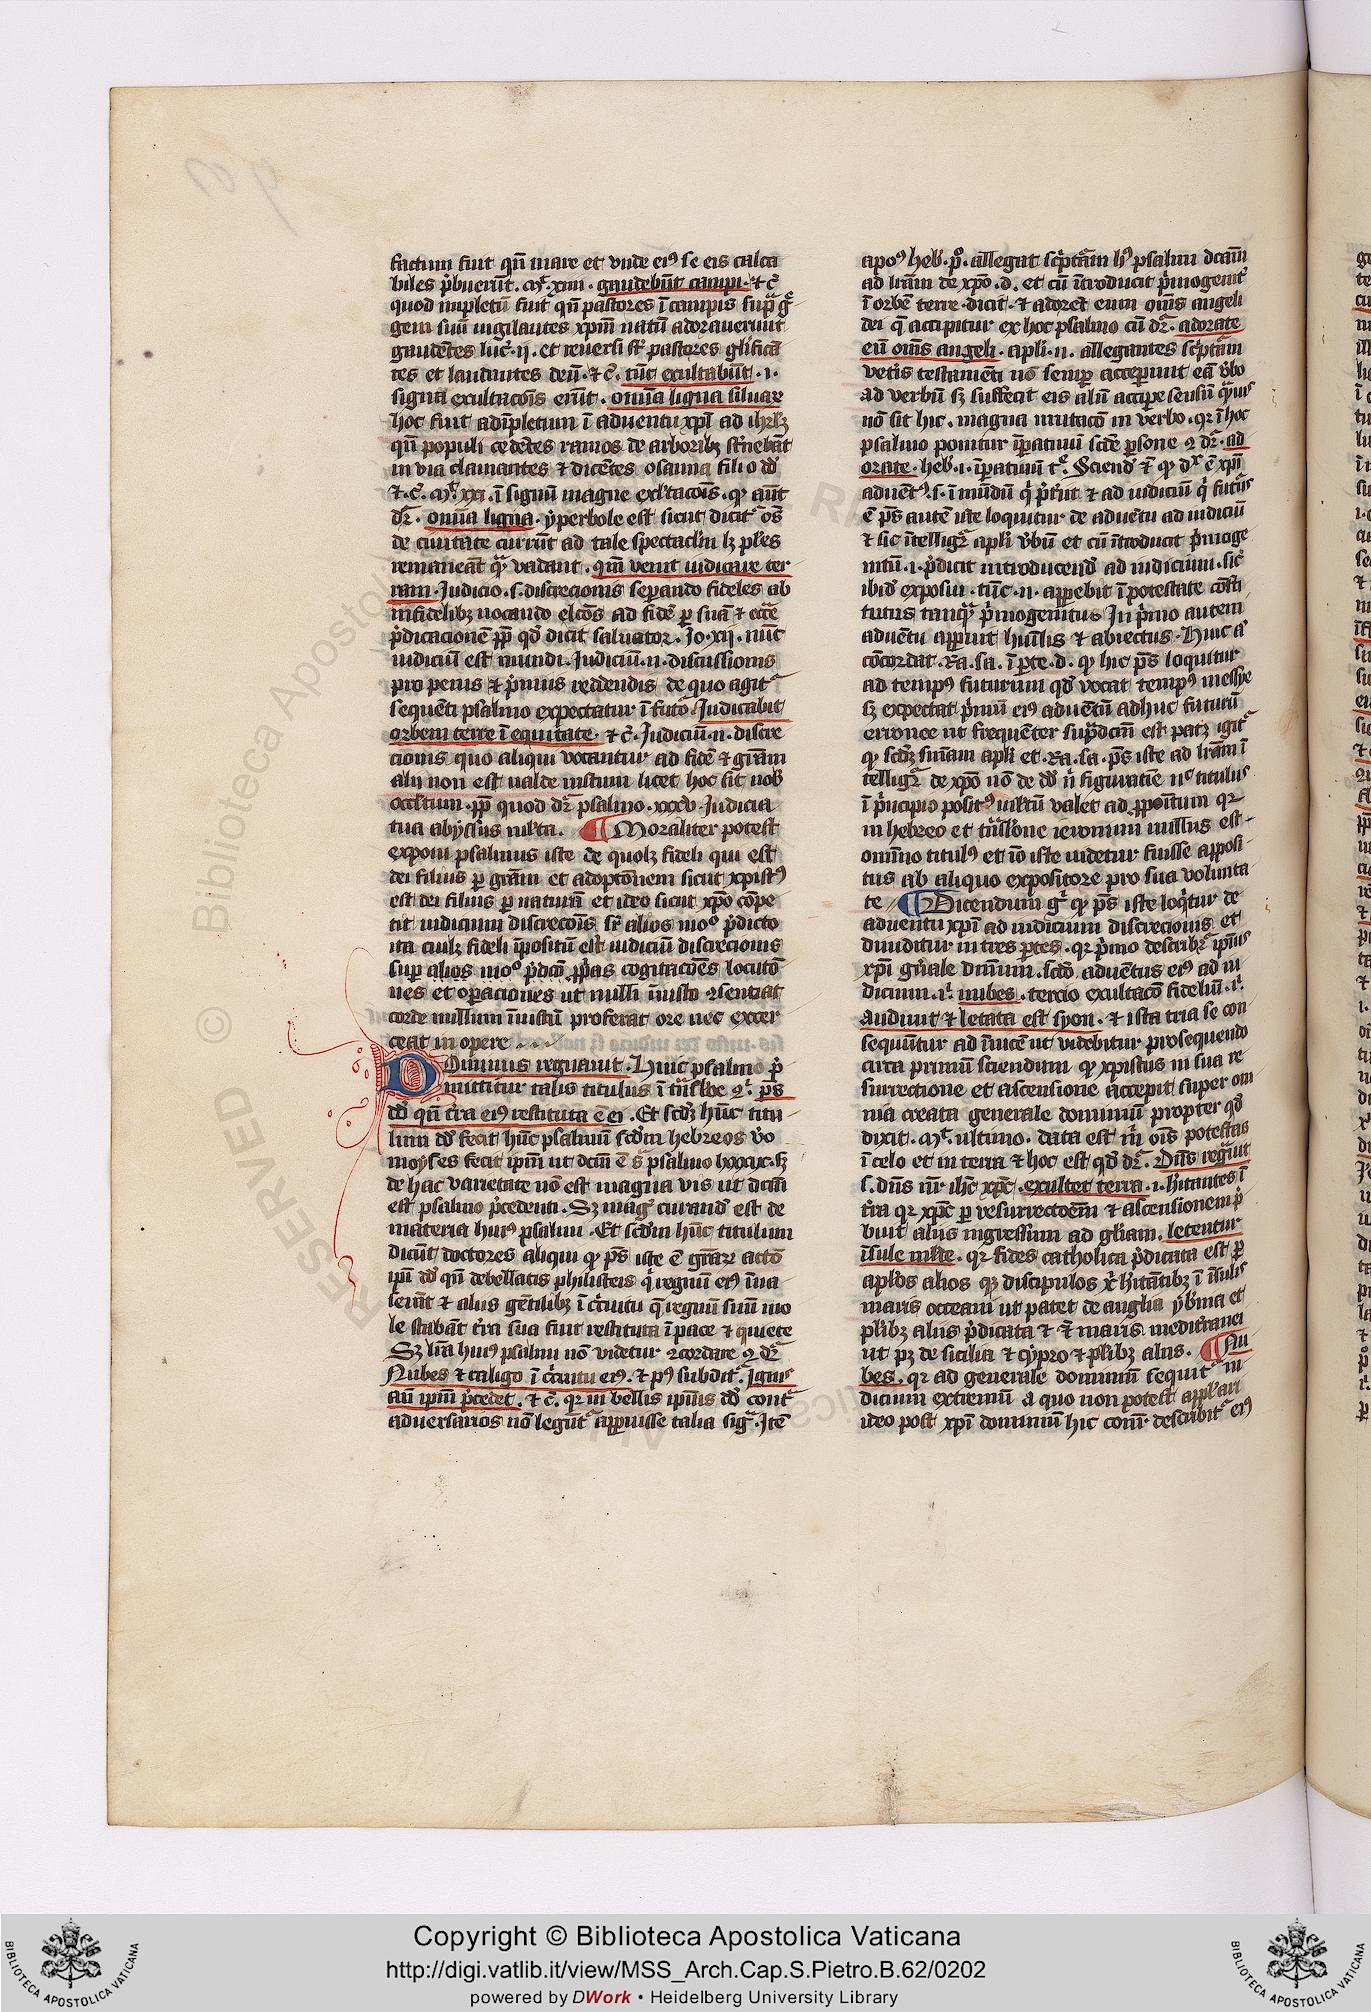 factum fuit qn̄ mare et vnde eiꝰ se eis calca
biles p̄buerūt. mͬ. xiiii. gaudebūt campi. ⁊ c̄
quod impletū fuit qn̄ pastores ī campis supͣ gͤ
gem suū uigilantes xpm̄ natū adorauerunt
gaudētes luc̄. ii. et reuersi sͭ pastores glīficā
tes et laudantes deū ⁊ c̄. tūc exultabūt .i.
signa exultacōis erūt. om̄ia ligna siluaꝝ
hoc fuit adīpletum ī aduentu xpī ad ihrlꝫ
qn̄ populi cedētes ramos de arboribꝫ st̄nebāt
in via clamantes ⁊ dicētes osanna fili o dd̄
⁊ c̄. mͭ. xxi. ī signū magne exl̄tacōis. ꝙ aūt
dr̄. om̄ia ligna. yperbole est sicut dicitᷣ oēs
de ciuitate currūt ad tale spectacl̄m lꝫ pl̄es
remaneāt qͥ vadant. qm̄ venit iudicare ter
ram. Judicio .s. discrecionis sepando fideles ab
infidelibꝫ uocando elcōs ad fidē ꝑ suā ⁊ eccē
p̄dicacionē ꝓp̄ qd̄ dicit saluator. Jo. xii. nūc
iudiciū est mundi. Judiciū .n. discussionis
pro penis ⁊ p̄miis reddendis de quo agitᷣ
sequēti psalmo expectatur ī futō Judicabit
orbem terre ī equitate. ⁊ c̄. Judiciū .n. discre
cionis quo aliqui vocantur ad fidē ⁊ grām
alii non est ualde iustum licet hoc sit nob̄
occl̄tum. ꝓp̄ quod dr̄ psalmo. xxxv. Judicia
tua abyssus ml̄ta. ¶ Moraliter potest
exponi psalmus iste de quolꝫ fideli qui est
dei filius ꝑ grām et adoptōnem sicut xpistꝰ
est dei filius ꝑ naturā et ideo sicut xpō cōpe
tit iudicium discrecōis sr̄ alios moᵒ p̄dicto
ita cuilꝫ fideli īpositū est iudiciū discrecionis
sup alios moᵒ p̄dcō ꝓp̄as cogitacōes locutō
nes et opaciones ut nulli īiusto ꝯsentiat
corde nullum īiustū proferat ore nec exer
ceat in opere . . .
Dominus regnauit. Huic psalmo p̄
mittitur talis titulus ī trāsl̄oe ꝯ. ps̄
dd̄ qn̄ tr̄a eiꝰ restituta ē ei. Et scd̄ꝫ hūc titu
lum dd̄ fecit hūc psalmū scd̄m hebreos vͦo
moyses fecit ipm̄ ut dcm̄ ē sͣ psalmo lxxxix. sꝫ
de hac varietate nō est magna vis ut dcm̄
est psalmo p̄cedenti. Sꝫ magͥ curandū est de
materia huiꝰ psalmi. Et scd̄m hūc titulum
dicūt doctores aliqui ꝙ ps̄ iste ē grāꝝ actō
ipī dd̄ qn̄ debellatis philisteis qͥ regnū eiꝰ īua
serāt ⁊ aliis gētilibꝫ ī cͥcuitu qͥ regnū suū mo
le stabāt tr̄a sua fuit restituta ī pace ⁊ quiete
Sꝫ lr̄a huiꝰ psalmi nō videtur ꝯcordare ꝯ dr̄
Nubes ⁊ caligo ī cͥcuitu eiꝰ. ⁊ pꝰ subditᷣ. Ignis
aū ipm̄ p̄cedet. ⁊ c̄. qꝛ in bellis ipiūs dd̄ contͣ
aduersarios nō legūtᷣ apparuisse talia sigͣ. Itē
apoꝰ heb̄. pͦ. allegat sc̄ptām hꝰ psalmi dcām
ad lr̄am de xpō .d. et cū ītroducit p̄mogenitū
ī orbē terre dicit. ⁊ adorēt eum om̄s angeli
dei qͥ accipitur ex hoc psalmo cū dr̄. adorate
eū om̄s angeli. apl̄i .n. allegantes sc̄ptām
vetis testamēti nō semp acceperunt eā vͦbo
ad verbū sꝫ suffecit eis aliū accipe sensū qͣuis
nō sit hic. magna mutacō in vͤrbo. qꝛ ī hoc
psalmo ponitur īpatiuū scd̄e psone ꝯ dr̄. ad
orate. heb̄. i. īpatiuū tͤ. Sciend̄ ⁊ ꝙ dͬ ē xpī
aduētꝰ .s. ī mūdū qͥ p̄tīit ⁊ ad iudiciū qͥ futūs
ē ps̄ autē iste loquitur de aduētu ad iudiciū
⁊ sic ītelligᷣ apl̄i vͤbū et cū ītroducit p̄moge
nitū .i. p̄dicit introducend̄ ad iudicium. sic̄
ibid̄ exposui. tūc .n. appebit ī potestate cōsti
tutus tanqͣ p̄mogenitus In p̄mo autem
aduētu appuit humilis ⁊ abiectus. Huic aͥ
cōcordat. Ra. sa. ī pte .d. ꝙ hic ps̄ loquitur
ad tempꝰ futurum qd̄ vocat tempꝰ messye
sꝫ expectat p̄mū eiꝰ aduētū adhuc futurū
erronee ut frequēter sup̄dcm̄ est patꝫ igitᷣ
ꝙ scd̄ꝫ sniām apl̄i et. Ra. sa. ps̄ iste ad lr̄am ī
telligᷣ de xpō nō de dd̄ nͥ figuratiē nͨ titulus
ī p̄ncipio positꝰ ml̄tū valet ad ꝓpoītum qꝛ
in hebreo et trāsl̄one ieronimi nullus est.
omīno titulꝰ et iō iste uidetur fuisse apposi
tus ab aliquo expositore pro sua volunta
te ¶ Dicendum gͦ ꝙ ps̄ iste loqͥtur de
aduentu xpī ad iudicium discrecionis et
diuiditur in tres ptes. qꝛ p̄mo describᷣ ipiūs
xpī gn̄ale dn̄ium. scd̄o aduētus eiꝰ ad iu
dicium. iͥ. nubes. tercio exultacō fidelium. iͥ.
Audiuit ⁊ letata est syon. ⁊ ista tria se con
sequūtur ad īuicē ut videbitur prosequendo
circa primū sciendum ꝙ xpistus in sua re
surrectione et ascensione accepit super om
nia creata generale dominiū propter qd̄
dixit. mͭ. ultimo. data est m̄ oīs potestas
ī celo et in terra ⁊ hoc est qd̄ dr̄. Dn̄s regͣuit
.s. dn̄s nr̄ ihc̄ xpc̄. exultet terra. i. hītantes ī
tr̄a qꝛ xpc̄ ꝑ resurrectoēm ⁊ ascensionem p̄
buit aliis ingressum ad glīam. letentur
īsule ml̄te. qꝛ fides catholica p̄dicata est ꝑ
aplōs alios qꝫ discipulos xͥ hītātibꝫ ī īsulis
maris occeani ut patet de anglia yb̄nia et
pl̄ibꝫ aliis p̄dicata ⁊ ē maris mediterranei
ut pꝫ de sicilia ⁊ cypro ⁊ pl̄ibꝫ aliis. ¶ Nu
bes. qꝛ ad generale dominiū sequitᷣ iu
dicium extremū a quo non potest appl̄ari
ideo post xpī dominiū hic conͬ describitᷣ eiꝰ
Copyright © Biblioteca Apostolica Vaticana
http://digi.vatlib.it/view/MSS_Arch.Cap.S.Pietro.B.62/0202
powered by DWork • Heidelberg University Library
BIBLIOTECA APOSTOLICA VATICANA
BIBLIOTECA APOSTOLICA VATICANA